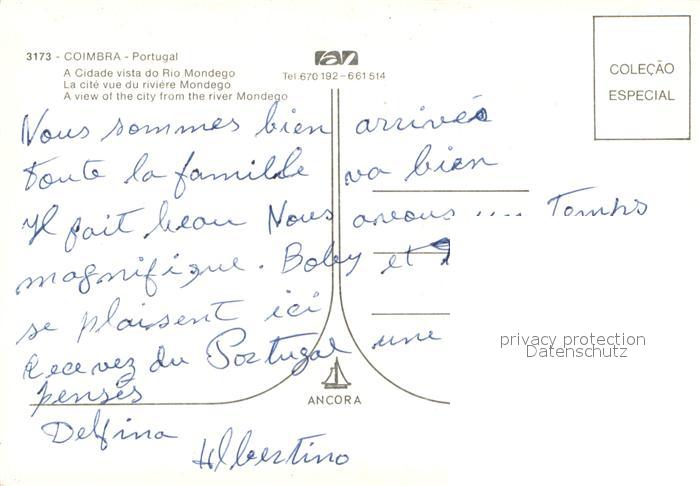 3173 - COIMBRA - Portugal
A Cidade vista do Rio Mondego
La cité vue du rivière Mondego
A view of the city from the river Mondego
Tel.670192-661514
COLEÇÃO
ESPECIAL
Nous sommes bien arrivés
Toute la famille va bien
Il fait beau Nous avons .... Temps
magnifique. Boby et
se plaisent ici
Recevez du Portugal une
pensés
Delfina
Albertino
privacy protection
Datenschutz
ANCORA